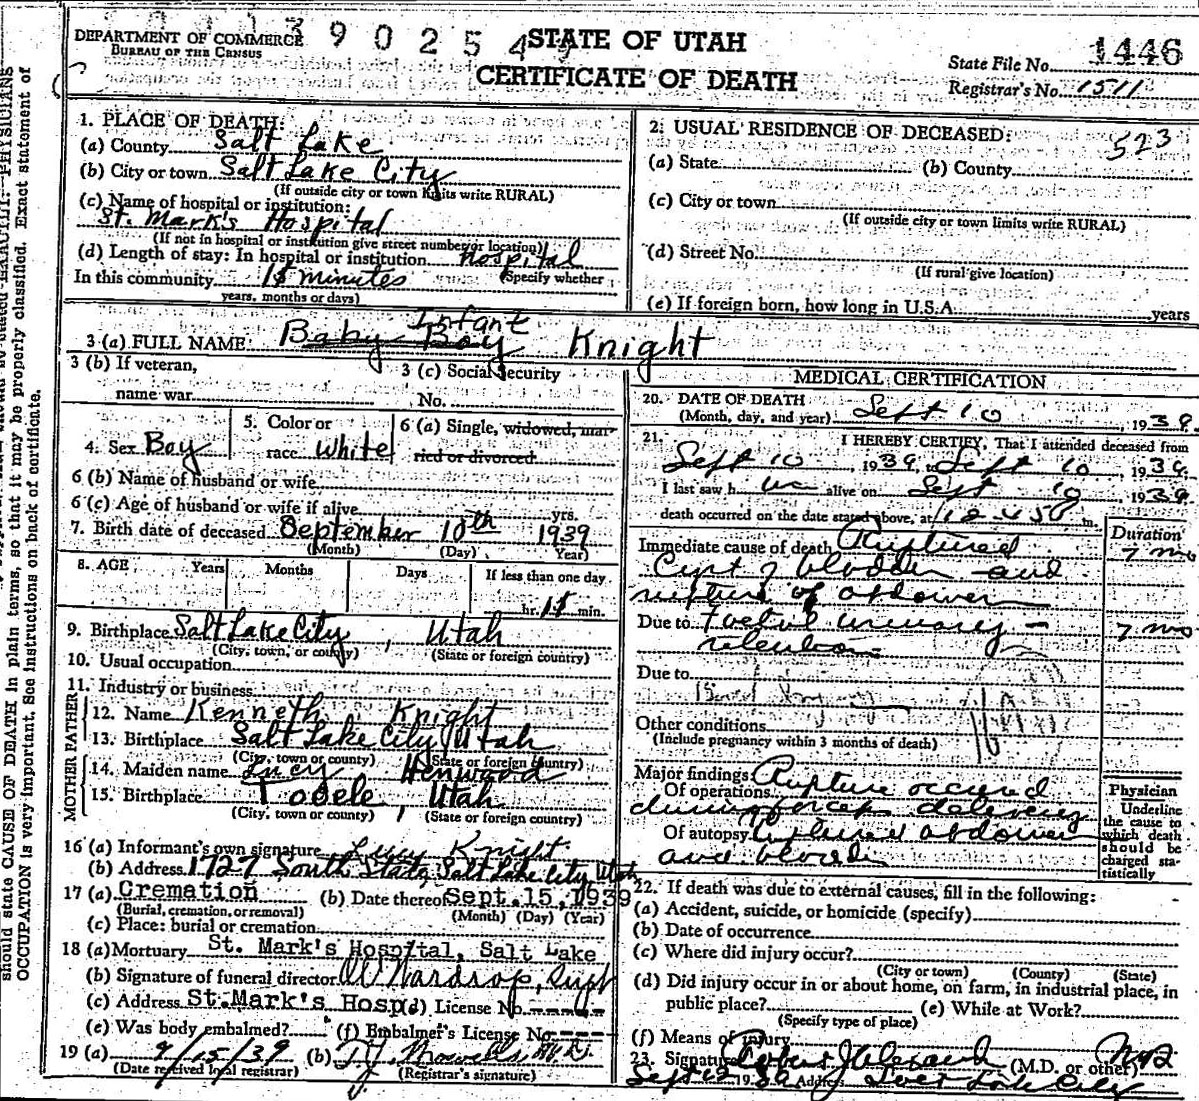 DEPARTMENT OF COMMERCE
BUREAU OF THE CENSUS
3 9 0 2 5 4
STATE OF UTAH
CERTIFICATE OF DEATH
State File No. 1446
Registrar's No. 1511
1. PLACE OF DEATH:
(a) County Salt Lake
(b) City or town Salt Lake City
(If outside city or town limits write RURAL)
(c) Name of hospital or institution:
St. Mark's Hospital
(If not in hospital or institution give street number or location)
(d) Length of stay: In hospital or institution hospital
(Specify whether
In this community 15 minutes
years, months or days)
2. USUAL RESIDENCE OF DECEASED: 523
(a) State (b) County
(c) City or town
(If outside city or town limits write RURAL)
(d) Street No.
(If rural give location)
(e) If foreign born, how long in U.S.A. years
Infant
3 (a) FULL NAME Baby Boy Knight
3 (b) If veteran,
name war
3 (c) Social Security
No.
4. Sex Boy
5. Color or
race White
6 (a) Single, widowed, mar-
ried or divorced
6 (b) Name of husband or wife
6 (c) Age of husband or wife if alive yrs.
7. Birth date of deceased September 10th 1939
(Month) (Day) (Year)
8. AGE Years Months Days If less than one day
hr. 15 min.
9. Birthplace Salt Lake City, Utah
(City, town, or county) (State or foreign country)
10. Usual occupation
11. Industry or business
FATHER
12. Name Kenneth Knight
13. Birthplace Salt Lake City, Utah
(City, town or county) (State or foreign country)
MOTHER
14. Maiden name Lucy Henwood
15. Birthplace Tooele, Utah
(City, town or county) (State or foreign country)
16 (a) Informant's own signature Lucy Knight
(b) Address 1727 South State, Salt Lake City, Utah
17 (a) Cremation (b) Date thereof Sept. 15, 1939
(Burial, cremation, or removal) (Month) (Day) (Year)
(c) Place: burial or cremation
18 (a) Mortuary St. Mark's Hospital, Salt Lake
(b) Signature of funeral director W Wardrop, Supt
(c) Address St. Mark's Hosp (d) License No
(e) Was body embalmed? (f) Embalmer's License No
19 (a) 9/15/39 (b) T.J. M.D.
(Date received local registrar) (Registrar's signature)
MEDICAL CERTIFICATION
20. DATE OF DEATH
(Month, day, and year) Sept 10, 1939
21. I HEREBY CERTIFY, That I attended deceased from
Sept 10, 1939, to Sept 10, 1939
I last saw h im alive on Sept 10 1939
death occurred on the date stated above, at 12:45 m.
Duration
Immediate cause of death Ruptured 7 mo
Cyst of bladder and
rupture of abdomen
Due to Foetal urinary - 7 mo
retention
Due to
Other conditions
(Include pregnancy within 3 months of death)
Major findings:
Of operations Rupture occured
during forceps delivery
Of autopsy Ruptured abdomen
and bladder
Physician
Underline
the cause to
which death
should be
charged sta-
tistically
22. If death was due to external causes, fill in the following:
(a) Accident, suicide, or homicide (specify)
(b) Date of occurrence
(c) Where did injury occur?
(City or town) (County) (State)
(d) Did injury occur in or about home, on farm, in industrial place, in
public place? (e) While at Work?
(Specify type of place)
(f) Means of injury
23. Signature J Alexander (M.D. or other) M.D.
Sept 12 1939 Address Salt Lake City
should state CAUSE OF DEATH in plain terms, so that it may be properly classified. Exact statement of
OCCUPATION is very important. See instructions on back of certificate.